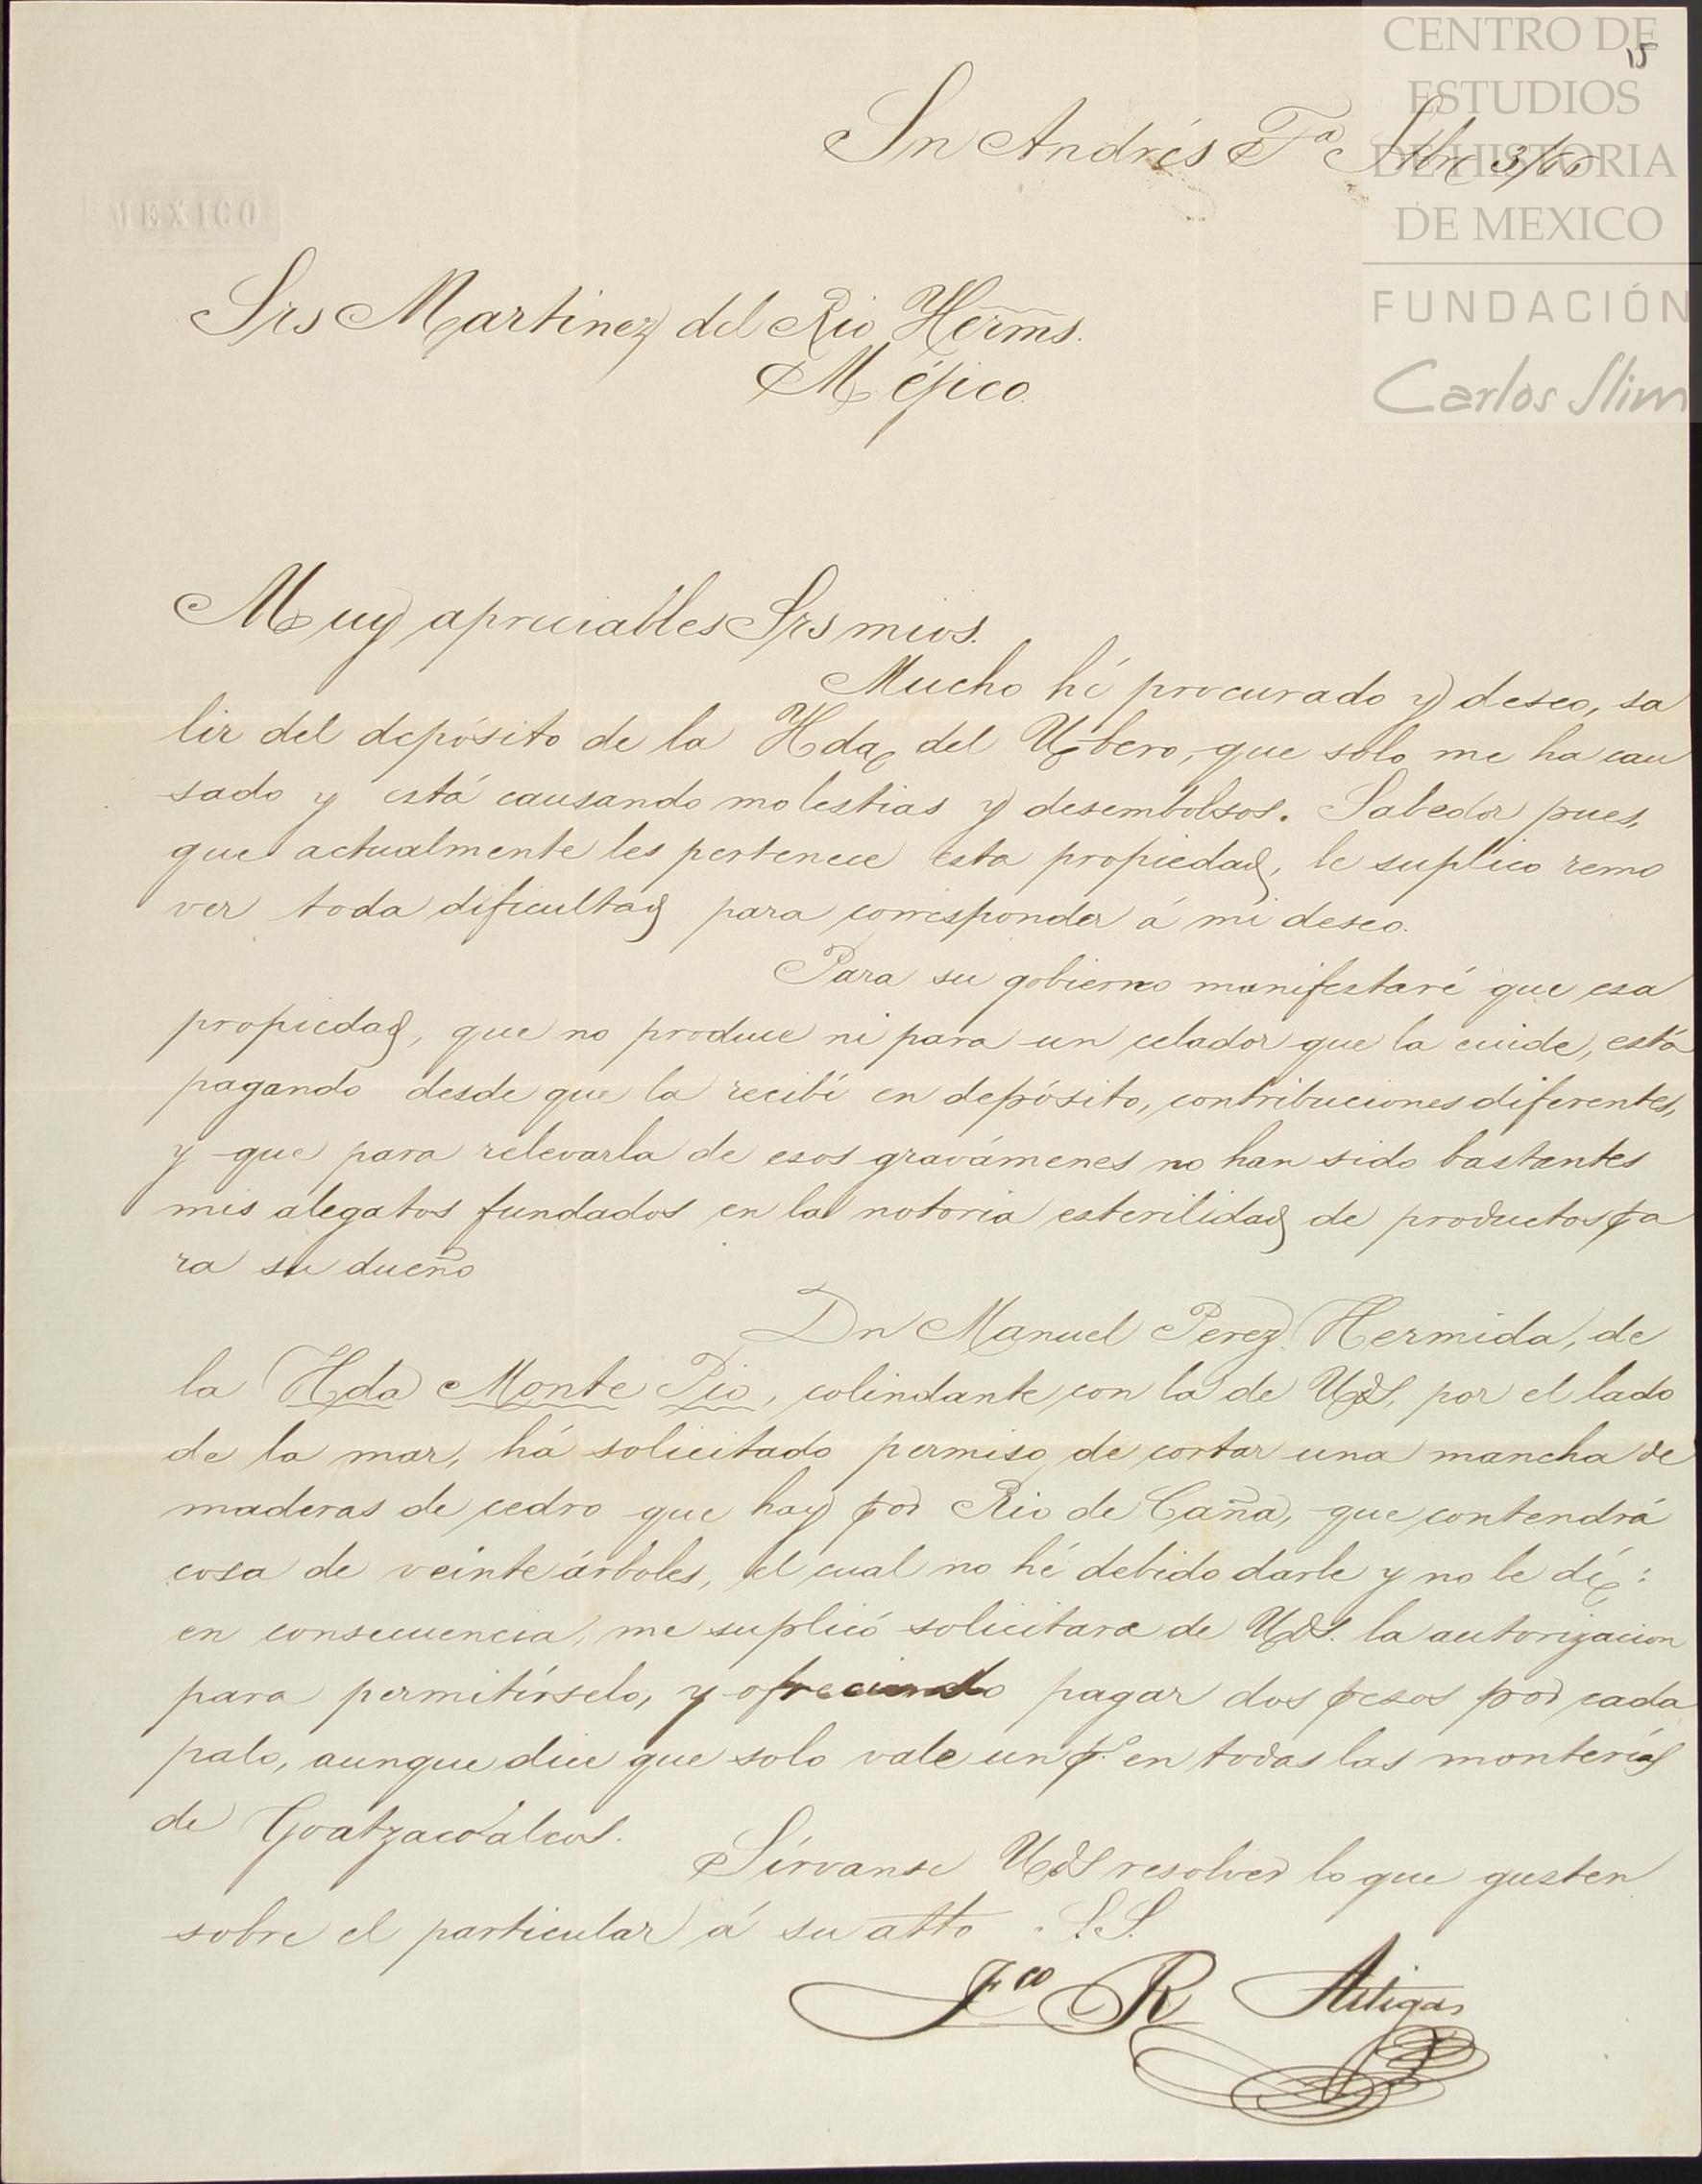 CENTRO DE
ESTUDIOS
DE HISTORIA
DE MEXICO
FUNDACIÓN
Carlos Slim
15
Sn Andrés Ta Stbre 3/66
MEXICO
Srs Martinez del Rio Herms.
Méjico.
Muy apreciables Srs mios.
Mucho hé procurado y deseo, sa
lir del depósito de la Hda del Uvero, que solo me ha cau
sado y está causando molestias y desembolsos. Sabedor pues,
que actualmente les pertenece esta propiedad, le suplico remo
ver toda dificultad para corresponder á mi deseo.
Para su gobierno manifestaré que esa
propiedad, que no produce ni para un celador que la cuide, está
pagando desde que la recibí en depósito, contribuciones diferentes,
y que para relevarla de esos gravámenes no han sido bastantes
mis alegatos fundados en la notoria esterilidad de productos pa
ra su dueño
Dn Manuel Perez Hermida, de
la Hda Monte Pio, colindante con la de Uds, por el lado
de la mar, há solicitado permiso de cortar una mancha de
maderas de cedro que hay por Rio de Caña, que contendrá
cosa de veinte árboles, el cual no hé debido darle y no le dí:
en consecuencia, me suplicó solicitara de Uds. la autorizacion
para permitírselo, y ofreciendo pagar dos pesos por cada
palo, aunque dice que solo vale un po. en todas las monterías
de Goatzacoalcos.
Sírvanse Uds resolver lo que gusten
sobre el particular á su atto S.S.
Fco R Artigas